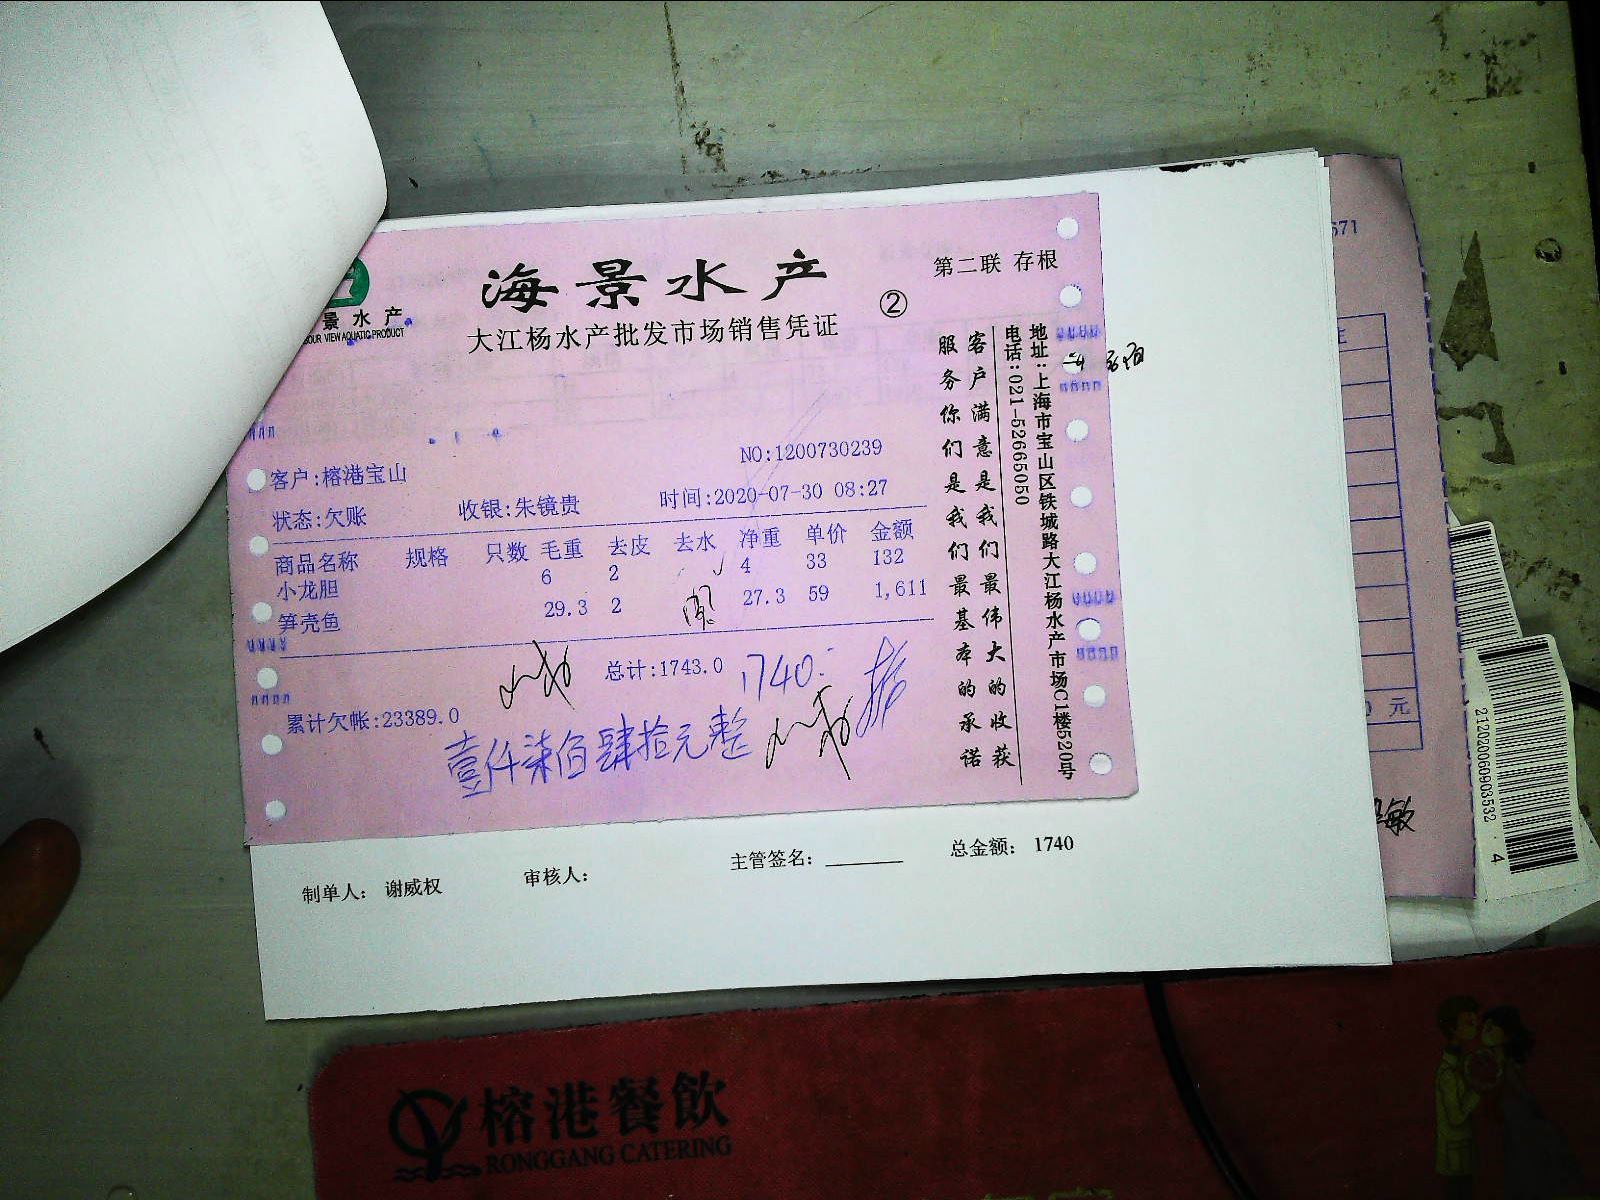 海景水产
第二联 存根
②
景水产
OUR VIEW AQUATIC PRODUCT
大江杨水产批发市场销售凭证
NO:1200730239
客户:榕港宝山
状态:欠账 收银:朱镜贵 时间:2020-07-30 08:27
商品名称 规格 只数 毛重 去皮 去水 净重 单价 金额
小龙胆 6 2 4 33 132
笋壳鱼 29.3 2 27.3 59 1,611
总计:1743.0 1740.
累计欠帐:23389.0
壹仟柒佰肆拾元整
地址:上海市宝山区铁城路大江杨水产市场C1楼520号
电话:021-52665050
客户满意是我们最伟大的收获
服务你们是我们最基本的承诺
制单人: 谢威权 审核人: 主管签名: 总金额: 1740
571
元
敏
21202060903532 4
榕港餐飲
RONGGANG CATERING